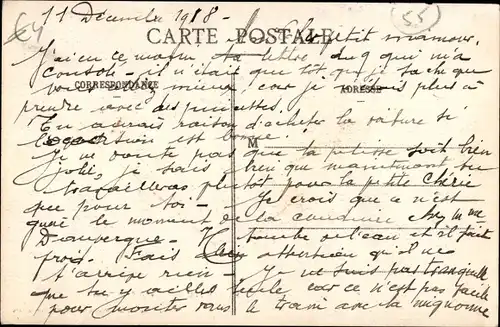 11 Décembre 1918 -
(55)
CARTE POSTALE
petit m'amour.
J'ai eu ce matin ta lettre du 9 qui m'a
consolé - il n'était que tôt que je sache que
CORRESPONDANCE
ADRESSE
mieux, car je plus à
prendre avec des pincettes.
Tu aurais raison d'acheter la voiture si
l'occasion est bonne.
M
Je ne doute pas que la pelisse soit bien
jolie, je sais bien que maintenant tu
travailleras plutôt pour la petite Chérie
que pour toi - Je crois que ce n'est
guère le moment de la conduire chez mme
D'auvergne - tombe de l'eau et il fait
froid. Fais attention qu'il ne
t'arrive rien - Je ne suis pas tranquille
que tu y ailles seule car ce n'est pas facile
pour monter dans le train avec la mignonne